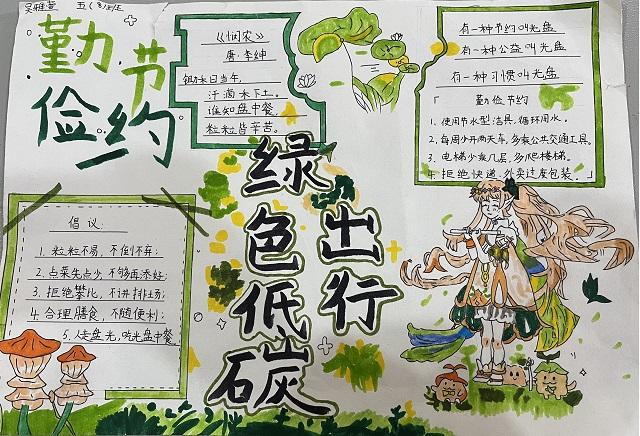 五(3)班
勤俭节约
《悯农》
唐·李绅
锄禾日当午,
汗滴禾下土。
谁知盘中餐,
粒粒皆辛苦。
有一种节约叫光盘
有一种公益叫光盘
有一种习惯叫光盘
「 勤俭节约
1. 使用节水型洁具,循环用水。
2. 每周少开两天车,多乘公共交通工具。
3. 电梯少乘几层,多爬楼梯。
4. 拒绝快递、外卖过度包装. 」
绿色低碳
出行
倡议:
1. 粒粒不易,不倒不弃;
2. 点菜先点少,不够再添好;
3. 拒绝攀比,不讲排场;
4. 合理膳食,不随便利;
5. 人走盘光,吃光盘中餐